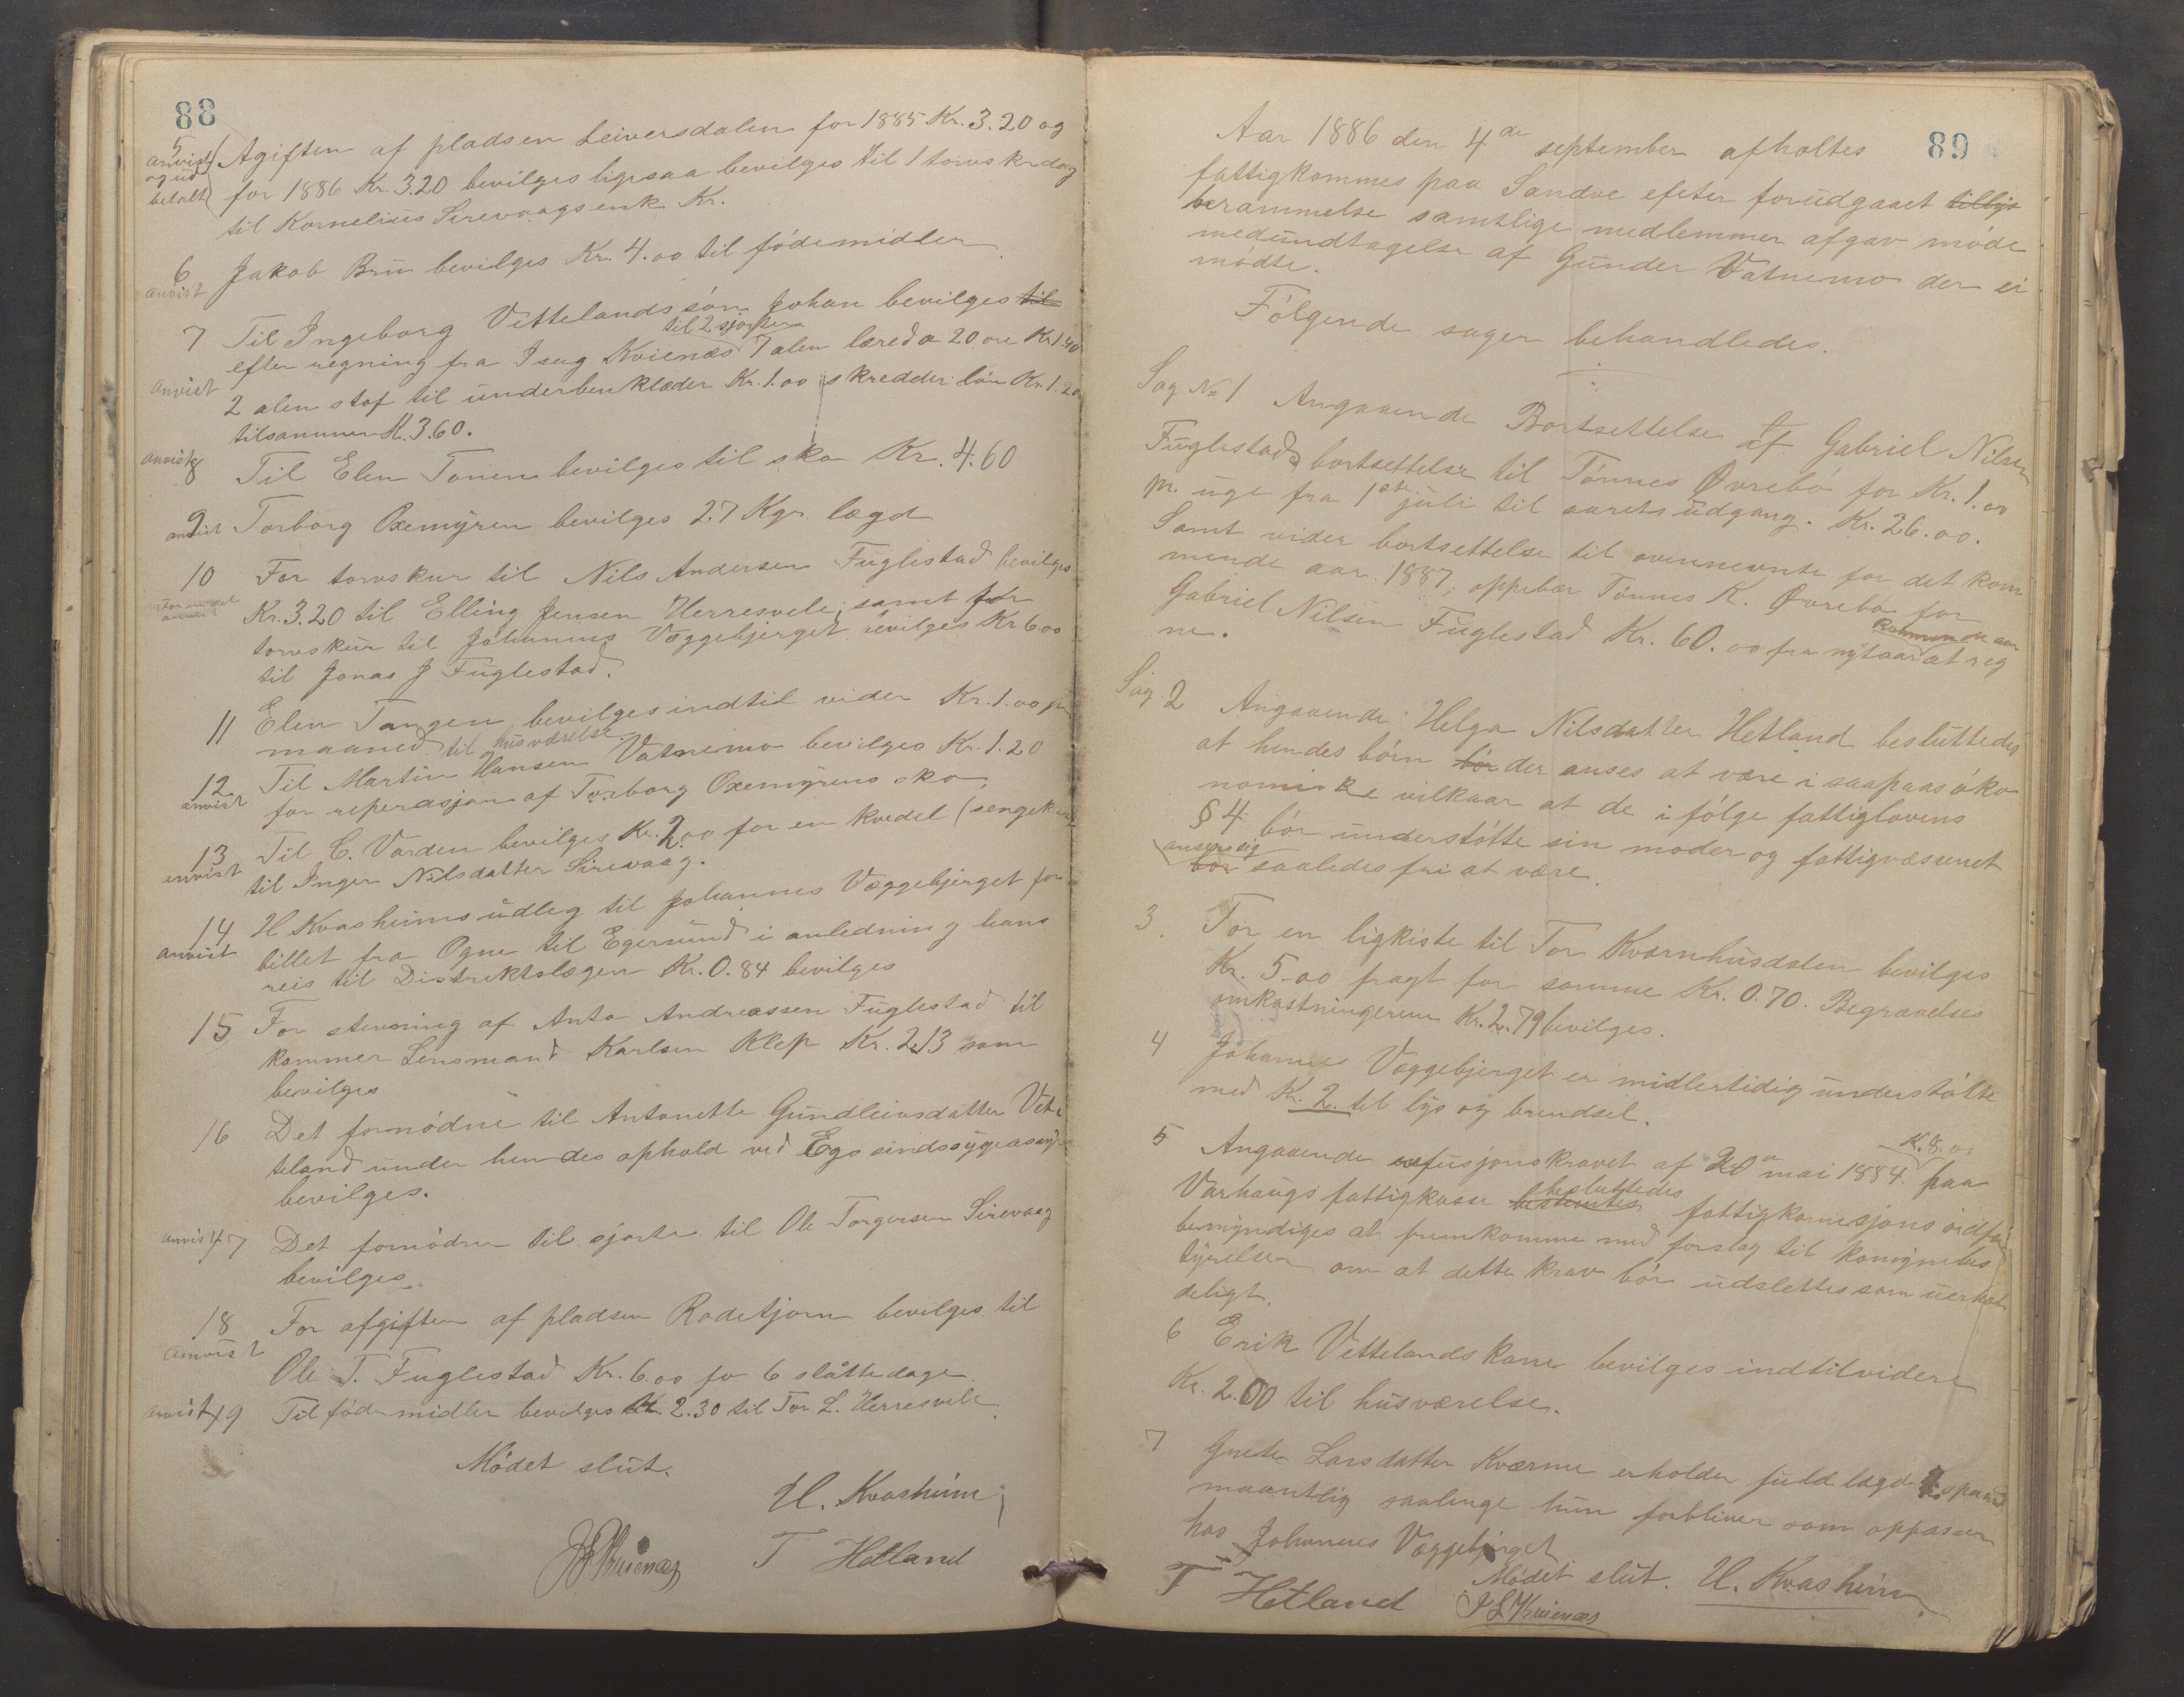 88
5 anvist og ud betalt Agiften af pladsen Leiversdalen for 1885 Kr. 3.20 og
for 1886 Kr. 3.20 bevilges ligesaa bevilges til 1 torvskurdag
til Kornelius Sirevaags enk Kr.
6 anvist Jakob Bru bevilges Kr. 4.00 til födemidler.
7 Til Ingeborg Vettelands sön Johan bevilges til
til 2 sjorter
efter regning fra Isag Kvienæs 7 alen læred a 20 öre Kr 1.40
anvist 2 alen stof til underbenklæder Kr. 1.00 skredder lön Kr. 1.20
tilsammen K. 3.60.
anvist 8 Til Elen Tonen bevilges til sko Kr. 4.60
9 anvist Torborg Oxemyren bevilges 27 Kgr. lægd
10 For torvskur til Nils Andersen Fuglestad bevilges
Kr. 3.20 til Elling Jensen Herresvele, samt for
torvskur til Johannes Væggebjerget bevilges Kr 6.00
til Jonas J Fuglestad.
11 Elen Tangen bevilges indtil vider Kr. 1.00 pr
maaned til husværelse.
12 anvist Til Martin Hansen Vatnemo bevilges Kr. 1.20
for reperasjon af Torborg Oxemyrens sko
13 anvist Til C. Varden bevilges Kr. 2.00 for en kvedel (sengeklæde
til Inger Nilsdatter Sirevaag.
14 anvist H Kvasheims udleg til Johannes Væggebjerget for
billet fra Ogne til Egersund i anledning hans
reis til Distriktslægen Kr. 0.84 bevilges
15 For stevning af Anto Andreassen Fuglestad til
kommer Lensmand Karlsen Klep Kr. 2.13 som
bevilges
16 Det fornödne til Antonette Gundleivsdatter Vet
teland under hendes ophold ved Egs sindssygeasyl
bevilges.
anvist 17 Det fornödne til sjorte til Ole Torgersen Sirevaag
bevilges.
18 anvist For afgiften af pladsen Rodetjorn bevilges til
Ole T. Fuglestad Kr. 6.00 for 6 slåttedage
anvist 19 Til födemidler bevilges Kr. 2.30 til Tor L. Herresvele.
Mödet slut.
H. Kvasheim
T Hetland
89
Aar 1886 den 4de september afholtes
fattigkommes paa Sandve efeter forudgaaet tillys
berammelse samtlige medlemmer afgav möde
medundtagelse af Gunder Vatnemo der ei
mödte.
Fölgende sager behandledes.
Sag No 1 Angaaende Bortsettelse af Gabriel Nilsen
Fuglestads bortsettelse til Tönnes Øvrebö for Kr. 1.00
pr. uge fra 1ste juli til aarets udgang. Kr. 26.00.
Samt vider bortsettelse til ovennevnte for det kom
mende aar 1887, oppebær Tönnes K. Øvrebö for
Gabriel Nilsen Fuglestad Kr. 60.00 fra nytaar at reg
ne.
Sag. 2 Angaaende Helga Nilsdatter Hetland besluttedes
at hendes börn bör der anses at være i saapaas öko
nomiske vilkaar at de i fölge fattiglovens
§ 4 bör understötte sin moder og fattigvæsenet
anser sig
bör saaledes fri at være.
3. For en ligkiste til Tor Kvarnhusdalen bevilges
Kr. 5.00 fragt for samme Kr. 0.70. Begravelses
omkostningerne Kr. 2.79 bevilges.
4 Johannes Væggebjerget er midlertidig understötte
med Kr. 2. til lys og brendsel.
K. 8.00
5 Angaaende refusjonskravet af 20de mai 1884. paa
besluttedes
Varhaugs fattigkasse bestemtes fattigkomesjons ordför
bemyndiges at fremkomme med forslag til komynebes
tyrelsen om at dette krav bör udslettes som uerhol
deligt.
6 Erik Vettelands kone bevilges indtilvidere
Kr. 2.00 til husværelse.
7 Grete Larsdatter Kværne erholder fuld lægd 2 spand
maantlig saalenge hun forbliver som oppasser
hos Johannes Væggebjerget
Mödet slut. H. Kvasheim.
T Hetland I L Kvienæs